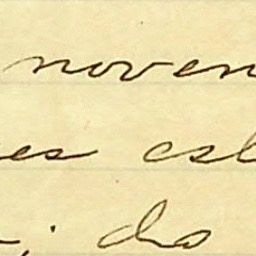 noven
es esl
; do